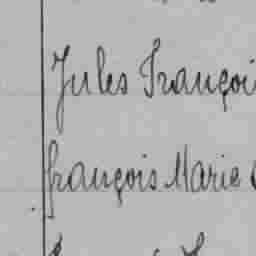 Jules Françoi
françois Marie